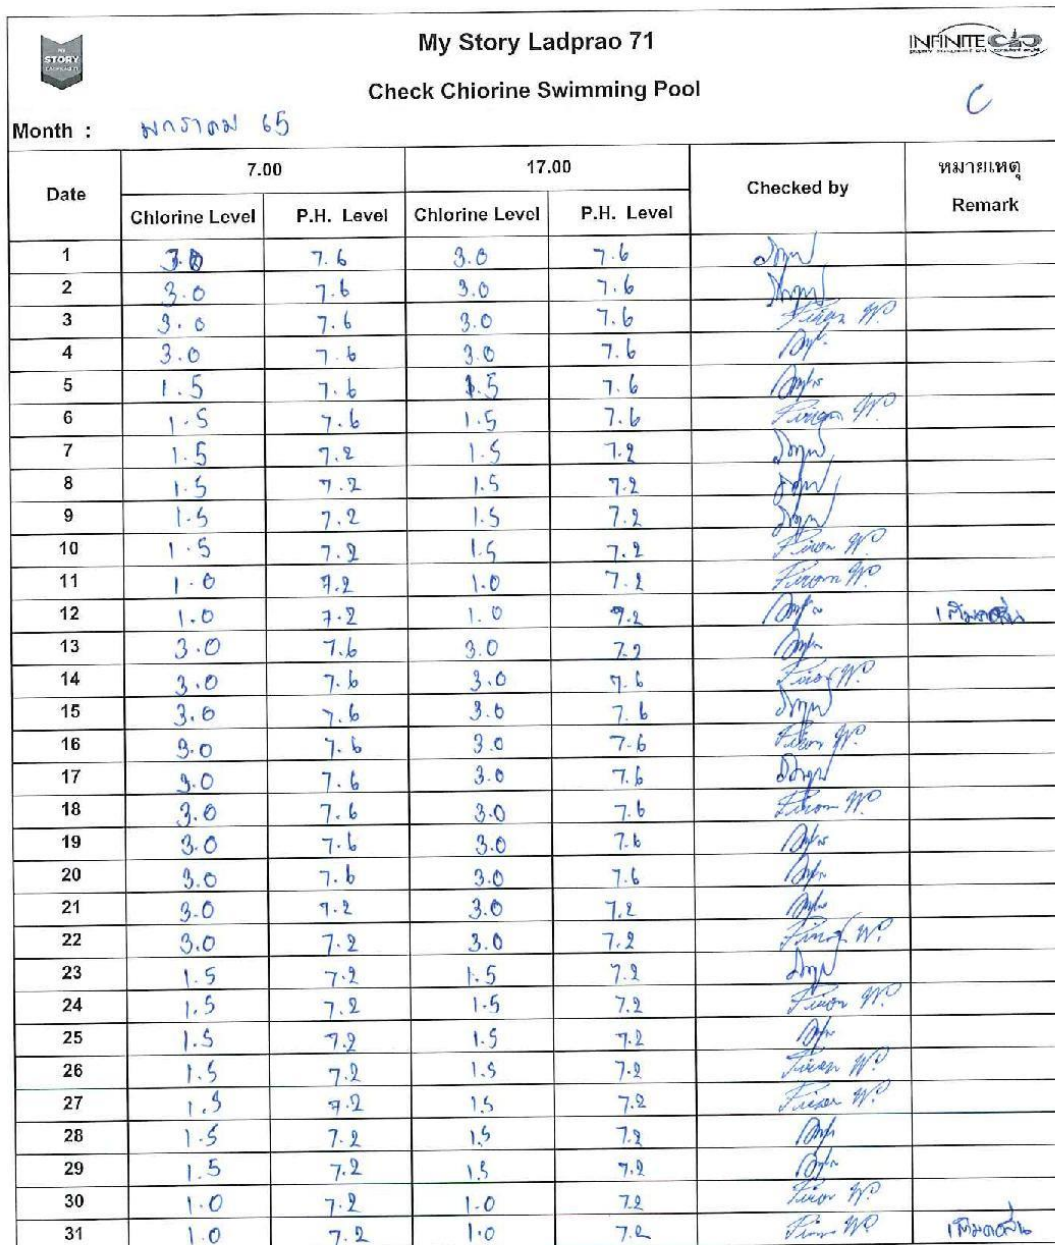 MY
STORY
LADPRAO 71
My Story Ladprao 71
INFINITE
Check Chiorine Swimming Pool
C
Month : มกราคม 65
Date 7.00 17.00 Checked by หมายเหตุ
Remark
Chlorine Level P.H. Level Chlorine Level P.H. Level
1 3.0 7.6 3.0 7.6
2 3.0 7.6 3.0 7.6
3 3.0 7.6 3.0 7.6
4 3.0 7.6 3.0 7.6
5 1.5 7.6 1.5 7.6
6 1.5 7.6 1.5 7.6
7 1.5 7.2 1.5 7.2
8 1.5 7.2 1.5 7.2
9 1.5 7.2 1.5 7.2
10 1.5 7.2 1.5 7.2
11 1.0 7.2 1.0 7.2
12 1.0 7.2 1.0 7.2
13 3.0 7.6 3.0 7.2
14 3.0 7.6 3.0 7.6
15 3.0 7.6 3.0 7.6
16 3.0 7.6 3.0 7.6
17 3.0 7.6 3.0 7.6
18 3.0 7.6 3.0 7.6
19 3.0 7.6 3.0 7.6
20 3.0 7.6 3.0 7.6
21 3.0 7.2 3.0 7.2
22 3.0 7.2 3.0 7.2
23 1.5 7.2 1.5 7.2
24 1.5 7.2 1.5 7.2
25 1.5 7.2 1.5 7.2
26 1.5 7.2 1.5 7.2
27 1.5 7.2 1.5 7.2
28 1.5 7.2 1.5 7.2
29 1.5 7.2 1.5 7.2
30 1.0 7.2 1.0 7.2
31 1.0 7.2 1.0 7.2